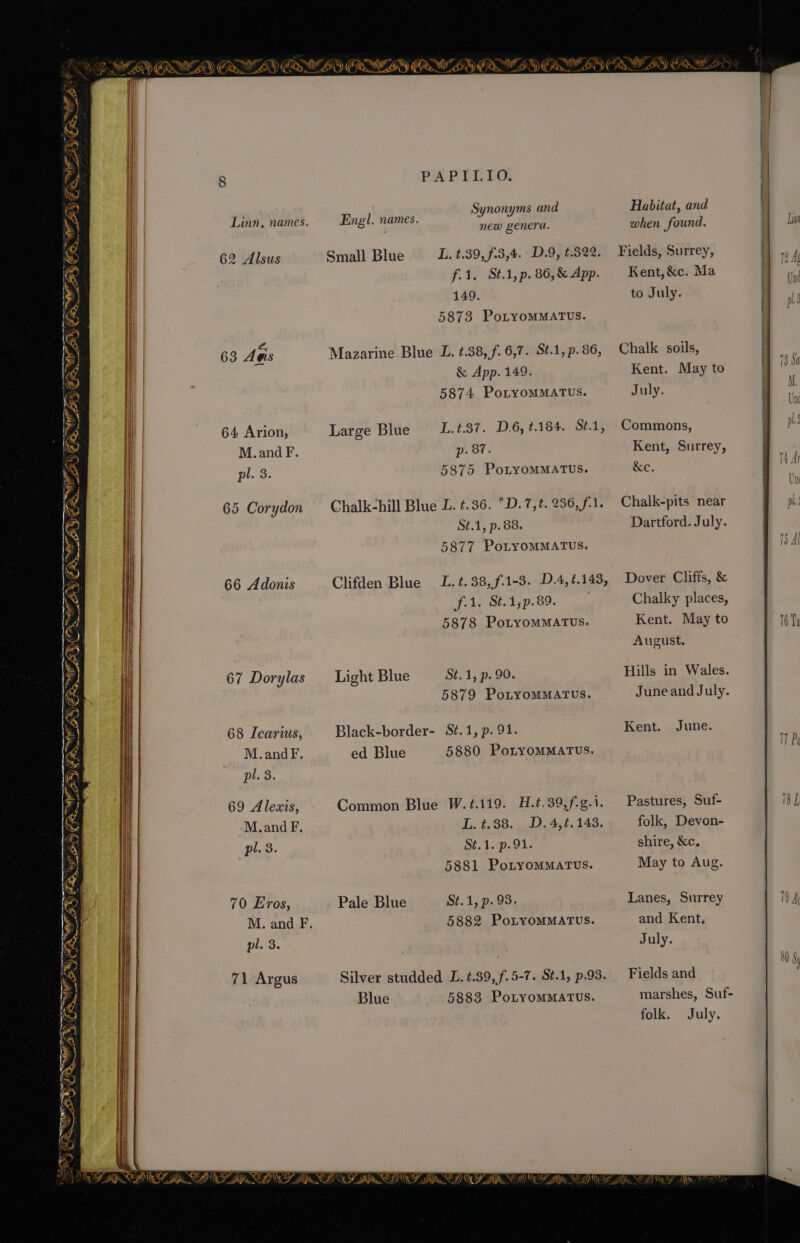 8 PAPILIO.
Linn. names. Engl. names. Synonyms and new genera. Habitat, and when found.
62 Alsus Small Blue L. t.39, f.3,4. D.9, t.322. Fields, Surrey,
f.1. St.1, p. 86, & App. Kent, &c. Ma
149. to July.
5873 POLYOMMATUS.
63 Acis Mazarine Blue L. t.38, f. 6,7. St.1, p. 86, Chalk soils,
& App. 149. Kent. May to
5874 POLYOMMATUS. July.
64 Arion, Large Blue L. t.37. D.6, t.184. St.1, Commons,
M. and F. p. 87. Kent, Surrey,
pl. 3. 5875 POLYOMMATUS. &c.
65 Corydon Chalk-hill Blue L. t.36. D. 7, t. 236, f.1. Chalk-pits near
St.1, p. 88. Dartford. July.
5877 POLYOMMATUS.
66 Adonis Clifden Blue L. t. 38, f.1-3. D.4, t.143, Dover Cliffs, &
f.1. St. 1, p. 89. Chalky places,
5878 POLYOMMATUS. Kent. May to
August.
67 Dorylas Light Blue St. 1, p. 90. Hills in Wales.
5879 POLYOMMATUS. June and July.
68 Icarius, Black-border- St. 1, p. 91. Kent. June.
M. and F. ed Blue 5880 POLYOMMATUS.
pl. 3.
69 Alexis, Common Blue W. t.119. H. t. 39, f.g.i. Pastures, Suf-
M. and F. L. t. 38. D. 4, t. 143. folk, Devon-
pl. 3. St. 1. p. 91. shire, &c.
5881 POLYOMMATUS. May to Aug.
70 Eros, Pale Blue St. 1, p. 93. Lanes, Surrey
M. and F. 5882 POLYOMMATUS. and Kent,
pl. 3. July.
71 Argus Silver studded L. t.39, f. 5-7. St.1, p.93. Fields and
Blue 5883 POLYOMMATUS. marshes, Suf-
folk. July.